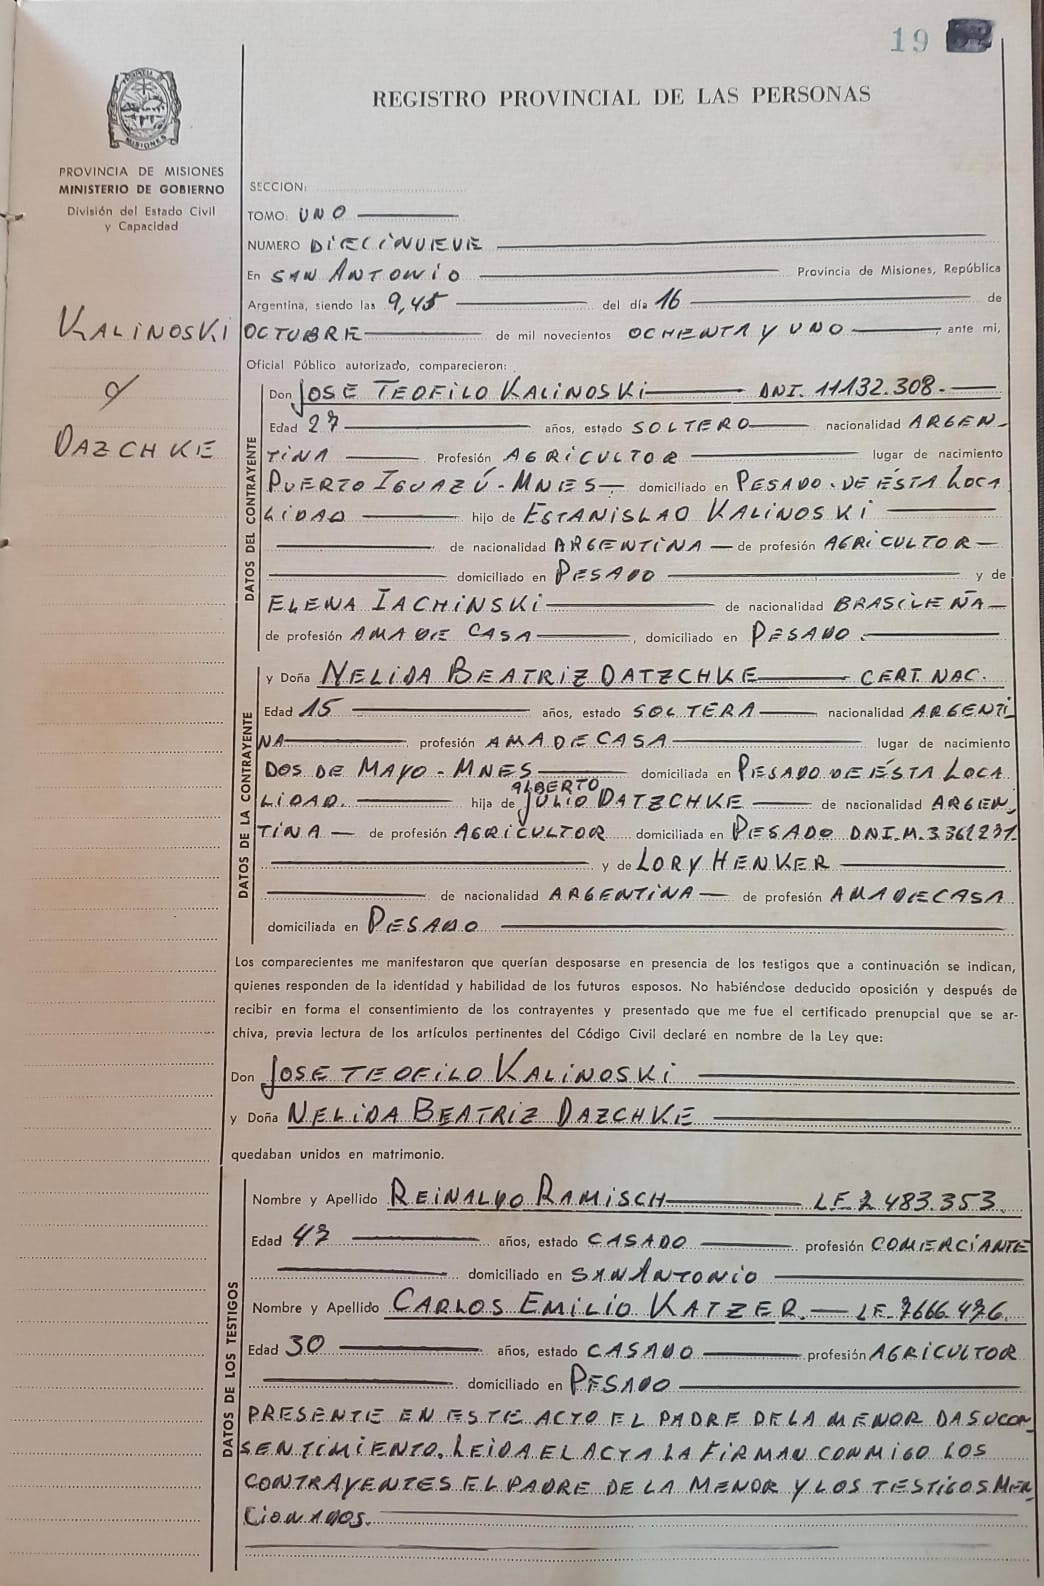 19
REGISTRO PROVINCIAL DE LAS PERSONAS
PROVINCIA DE MISIONES
MINISTERIO DE GOBIERNO
División del Estado Civil
y Capacidad
SECCION:
TOMO: UNO
NUMERO DIECINUEVE
En SAN ANTONIO Provincia de Misiones, República
Argentina, siendo las 9,45 del día 16 de
KALINOSKI
OCTUBRE de mil novecientos OCHENTA Y UNO, ante mi,
Oficial Público autorizado, comparecieron:
DAZCHKE
DATOS DEL CONTRAYENTE
Don JOSE TEOFILO KALINOSKI DNI. 11132.308.
Edad 27 años, estado SOLTERO nacionalidad ARGEN-
TINA Profesión AGRICULTOR lugar de nacimiento
PUERTO IGUAZÚ - MNES domiciliado en PESADO. DE ÉSTA LOCA
LIDAD hijo de ESTANISLAO KALINOSKI
de nacionalidad ARGENTINA de profesión AGRICULTOR
domiciliado en PESADO y de
ELENA IACHINSKI de nacionalidad BRASILEÑA
de profesión AMA DE CASA, domiciliado en PESADO.
DATOS DE LA CONTRAYENTE
y Doña NELIDA BEATRIZ DATZCHKE CERT. NAC.
Edad 15 años, estado SOLTERA nacionalidad ARGENTI
NA, profesión AMA DE CASA lugar de nacimiento
DOS DE MAYO - MNES domiciliada en PESADO DE ÉSTA LOCA
ALBERTO
LIDAD. hija de JULIO DATZCHKE de nacionalidad ARGEN
TINA de profesión AGRICULTOR domiciliada en PESADO DNI.M.
y de LORY HENKER
de nacionalidad ARGENTINA de profesión AMA DE CASA
domiciliada en PESADO
Los comparecientes me manifestaron que querían desposarse en presencia de los testigos que a continuación se indican,
quienes responden de la identidad y habilidad de los futuros esposos. No habiéndose deducido oposición y después de
recibir en forma el consentimiento de los contrayentes y presentado que me fue el certificado prenupcial que se ar-
chiva, previa lectura de los artículos pertinentes del Código Civil declaré en nombre de la Ley que:
Don JOSE TEOFILO KALINOSKI
y Doña NELIDA BEATRIZ DAZCHKE
quedaban unidos en matrimonio.
DATOS DE LOS TESTIGOS
Nombre y Apellido REINALDO RAMISCH LE 2 483.353.
Edad 47 años, estado CASADO profesión COMERCIANTE
domiciliado en SAN ANTONIO
Nombre y Apellido CARLOS EMILIO KATZER. LE. 7666.476.
Edad 30 años, estado CASADO profesión AGRICULTOR
domiciliado en PESADO
PRESENTE EN ESTE ACTO EL PADRE DE LA MENOR DA SU CON
SENTIMIENTO. LEIDA EL ACTA LA FIRMAN CONMIGO LOS
CONTRAYENTES EL PADRE DE LA MENOR Y LOS TESTIGOS MEN
CIONADOS.